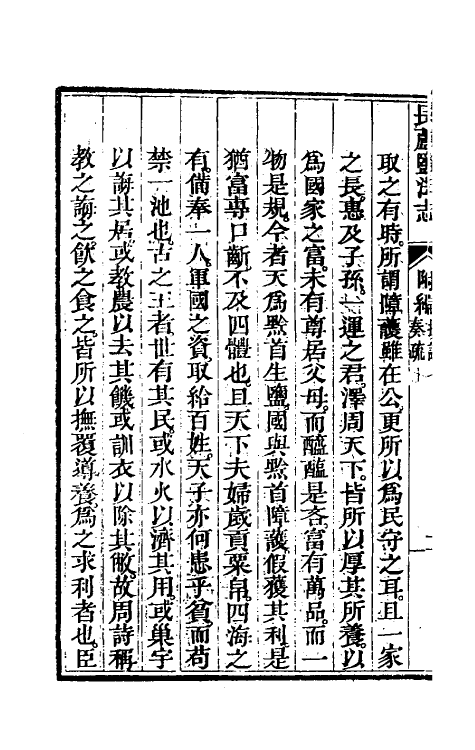 長蘆鹽法志
附編 奏疏
取之有時。所謂障護雖在公更所以爲民守之耳。且一家
之長惠及子孫。一運之君。澤周天下。皆所以厚其所養。以
爲國家之富。未有尊居父母。而醯醢是吝。富有萬品。而一
物是規。今者天爲黔首生鹽。國與黔首障護。假獲其利。是
猶富專口斷。不及四體也。且天下夫婦歲貢粟帛。四海之
有。備奉一人。軍國之資。取給百姓。天子亦何患乎貧。而苟
禁一池也。古之王者世有其民。或水火以濟其用。或巢宇
以誨其居。或教農以去其饑。或訓衣以除其敝。故周詩稱
教之誨之。飲之食之。皆所以撫覆導養。爲之求利者也。臣